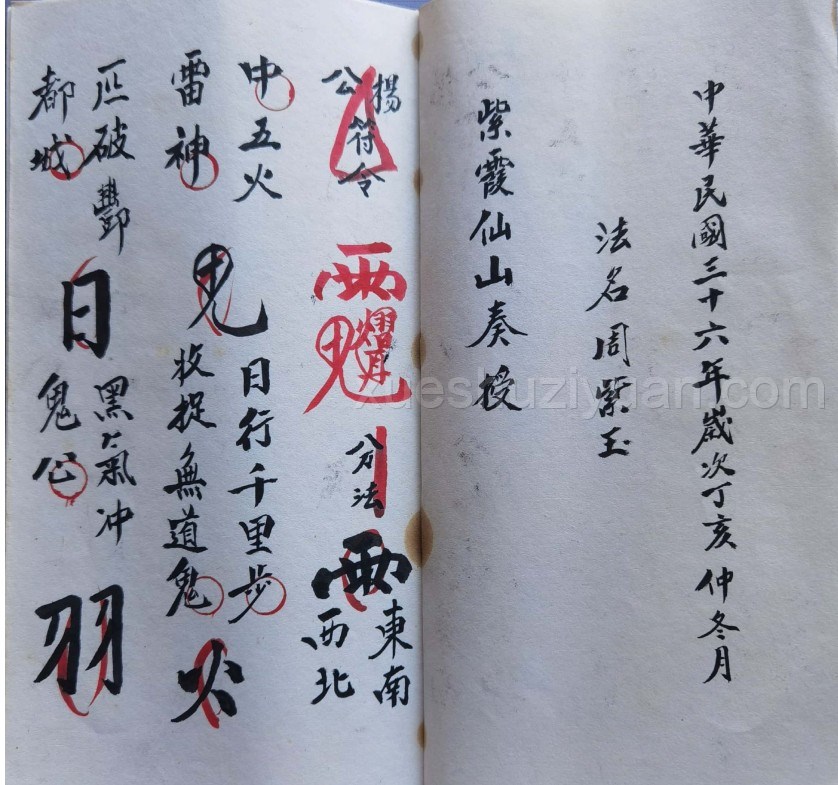 中華民國三十六年歲次丁亥仲冬月
法名周紫玉
紫霞仙山奏授
揚
公符令
雨
法
雨
東南
西北
中五火
雷神
日行千里步
收捉無道鬼
火
破酆
都城
日
黑氣冲
鬼公
羽
xueshuziyuan.com